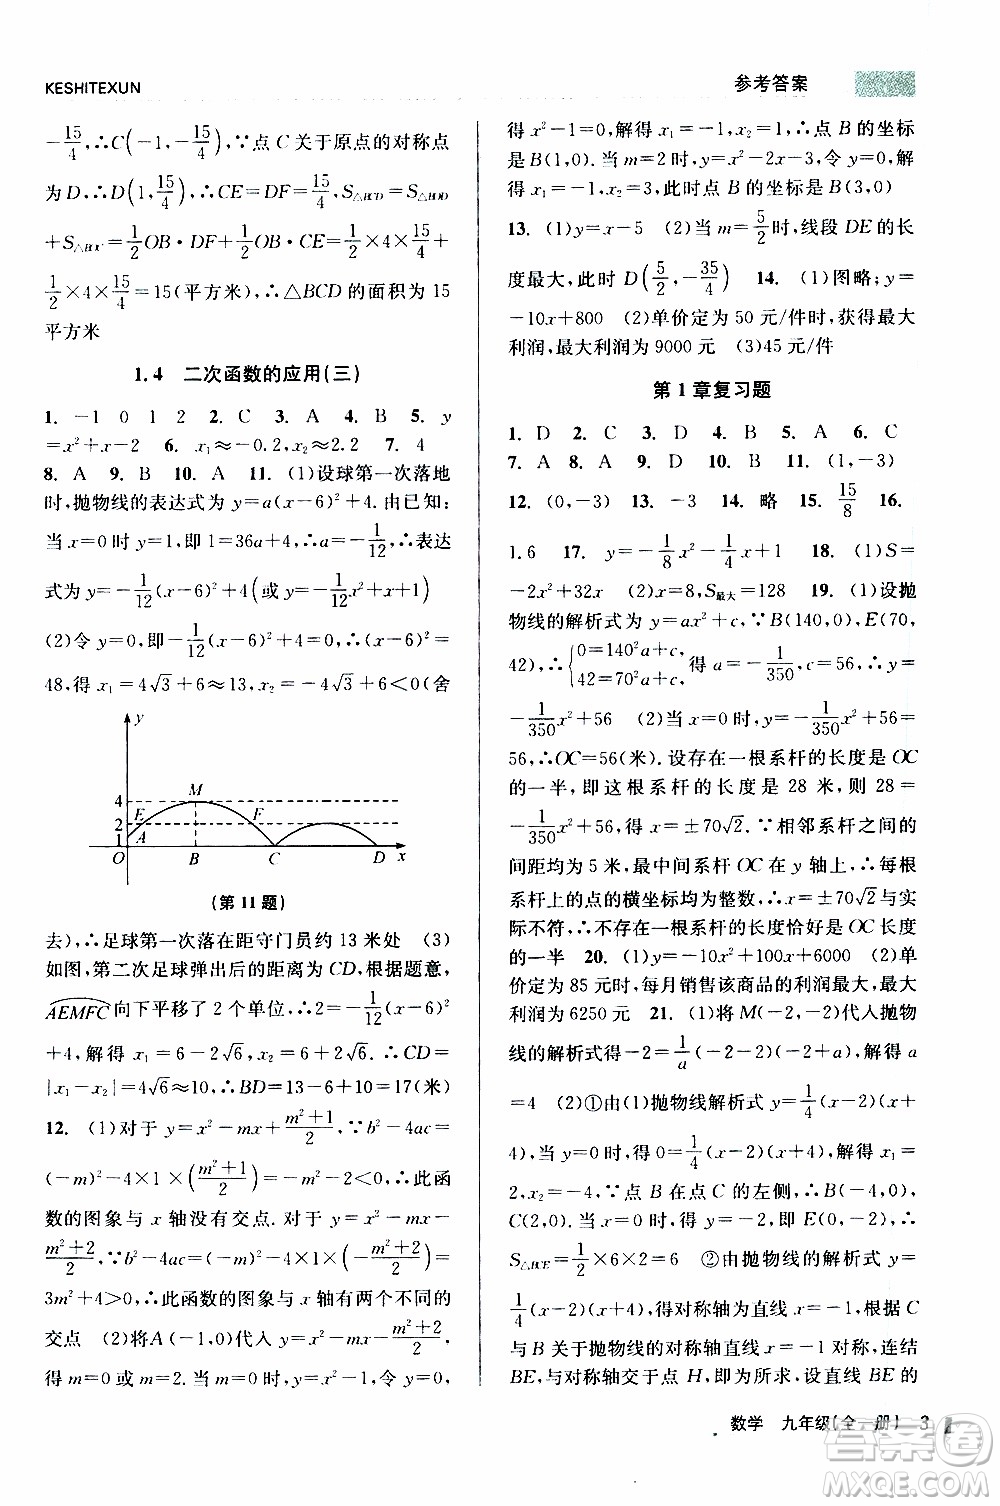 KESHITEXUN
参考答案
-15/4,∴C(-1,-15/4),∵点 C 关于原点的对称点
为 D,∴D(1,15/4),∴CE=DF=15/4,S△BCD=S△BOD
+S△BOC=1/2OB·DF+1/2OB·CE=1/2×4×15/4+
1/2×4×15/4=15(平方米),∴△BCD的面积为 15
平方米
1.4 二次函数的应用(三)
1. -1 0 1 2 2. C 3. A 4. B 5. y
=x²+x-2 6. x₁≈-0.2,x₂≈2.2 7. 4
8. A 9. B 10. A 11. (1)设球第一次落地
时,抛物线的表达式为 y=a(x-6)²+4.由已知:
当 x=0 时 y=1,即 1=36a+4,∴a=-1/12,∴表达
式为 y=-1/12(x-6)²+4(或 y=-1/12x²+x+1)
(2)令 y=0,即-1/12(x-6)²+4=0,∴(x-6)²=
48,得 x₁=4√3+6≈13,x₂=-4√3+6<0(舍
y
4
M
E
F
2
1
A
O B C D x
(第 11 题)
去),∴足球第一次落在距守门员约 13 米处 (3)
如图,第二次足球弹出后的距离为 CD,根据题意,
AEMFC向下平移了 2 个单位,∴2=-1/12(x-6)²
+4,解得 x₁=6-2√6,x₂=6+2√6,∴CD=
|x₁-x₂|=4√6≈10,∴BD=13-6+10=17(米)
12. (1)对于 y=x²-mx+m²+1/2,∵b²-4ac=
(-m)²-4×1×(m²+1/2)=-m²-2<0,∴此函
数的图象与 x 轴没有交点.对于 y=x²-mx-
m²+2/2,∵b²-4ac=(-m)²-4×1×(-m²+2/2)=
3m²+4>0,∴此函数的图象与 x 轴有两个不同的
交点 (2)将A(-1,0)代入 y=x²-mx-m²+2/2,
得 m=0 或 m=2.当 m=0 时,y=x²-1,令 y=0,
得 x²-1=0,解得 x₁=-1,x₂=1,∴点 B 的坐标
是 B(1,0).当 m=2 时,y=x²-2x-3,令 y=0,
解得 x₁=-1,x₂=3,此时点 B 的坐标是 B(3,0)
13. (1)y=x-5 (2)当 m=5/2时,线段 DE 的长
度最大,此时 D(5/2,-35/4) 14. (1)图略;y=
-10x+800 (2)单价定为 50 元/件时,获得最大
利润,最大利润为 9000 元 (3)45 元/件
第 1 章复习题
1. D 2. C 3. D 4. B 5. A 6. C
7. A 8. D 9. B 10. B 11. (1,-3)
12. (0,-3) 13. -3 14. 略 15. 15/8 16.
1.6 17. y=-1/8x²-1/4x+1 18. (1)S=
-2x²+32x (2)x=8,S最大=128 19. (1)设抛
物线的解析式为 y=ax²+c,∵B(140,0),E(70,
42),∴{0=140²a+c, 42=70²a+c,∴a=-1/350,c=56,∴y=
-1/350x²+56 (2)当 x=0 时,y=-1/350x²+56=
56,∴OC=56(米).设存在一根系杆的长度是 OC
的一半,即这根系杆的长度是 28 米,则 28=
-1/350x²+56,解得 x=±70√2.∵相邻系杆之间的
间距均为 5 米,最中间系杆 OC 在 y 轴上,∴每根
系杆上的点的横坐标均为整数,∴x=±70√2与实
际不符,∴不存在一根系杆的长度恰好是 OC 长度
的一半 20. (1)y=-10x²+100x+6000 (2)单
价定为 85 元时,每月销售该商品的利润最大,最大
利润为 6250 元 21. (1)将 M(-2,-2)代入抛物
线的解析式得-2=1/a(-2-2)(-2+a),解得 a
=4 (2)①由(1)抛物线解析式 y=1/4(x-2)(x+
4),当 y=0 时,得 0=1/4(x-2)(x+4),解得 x₁=
2,x₂=-4,∵点 B 在点 C 的左侧,∴B(-4,0),
C(2,0).当 x=0 时,得 y=-2,即 E(0,-2),∴
S△BCE=1/2×6×2=6 ②由抛物线的解析式 y=
1/4(x-2)(x+4),得对称轴为直线 x=-1,根据 C
与 B 关于抛物线的对称轴直线 x=-1 对称,连结
BE,与对称轴交于点 H,即为所求,设直线 BE 的
数学 九年级(全一册) 3
答案圈
MXQE.COM